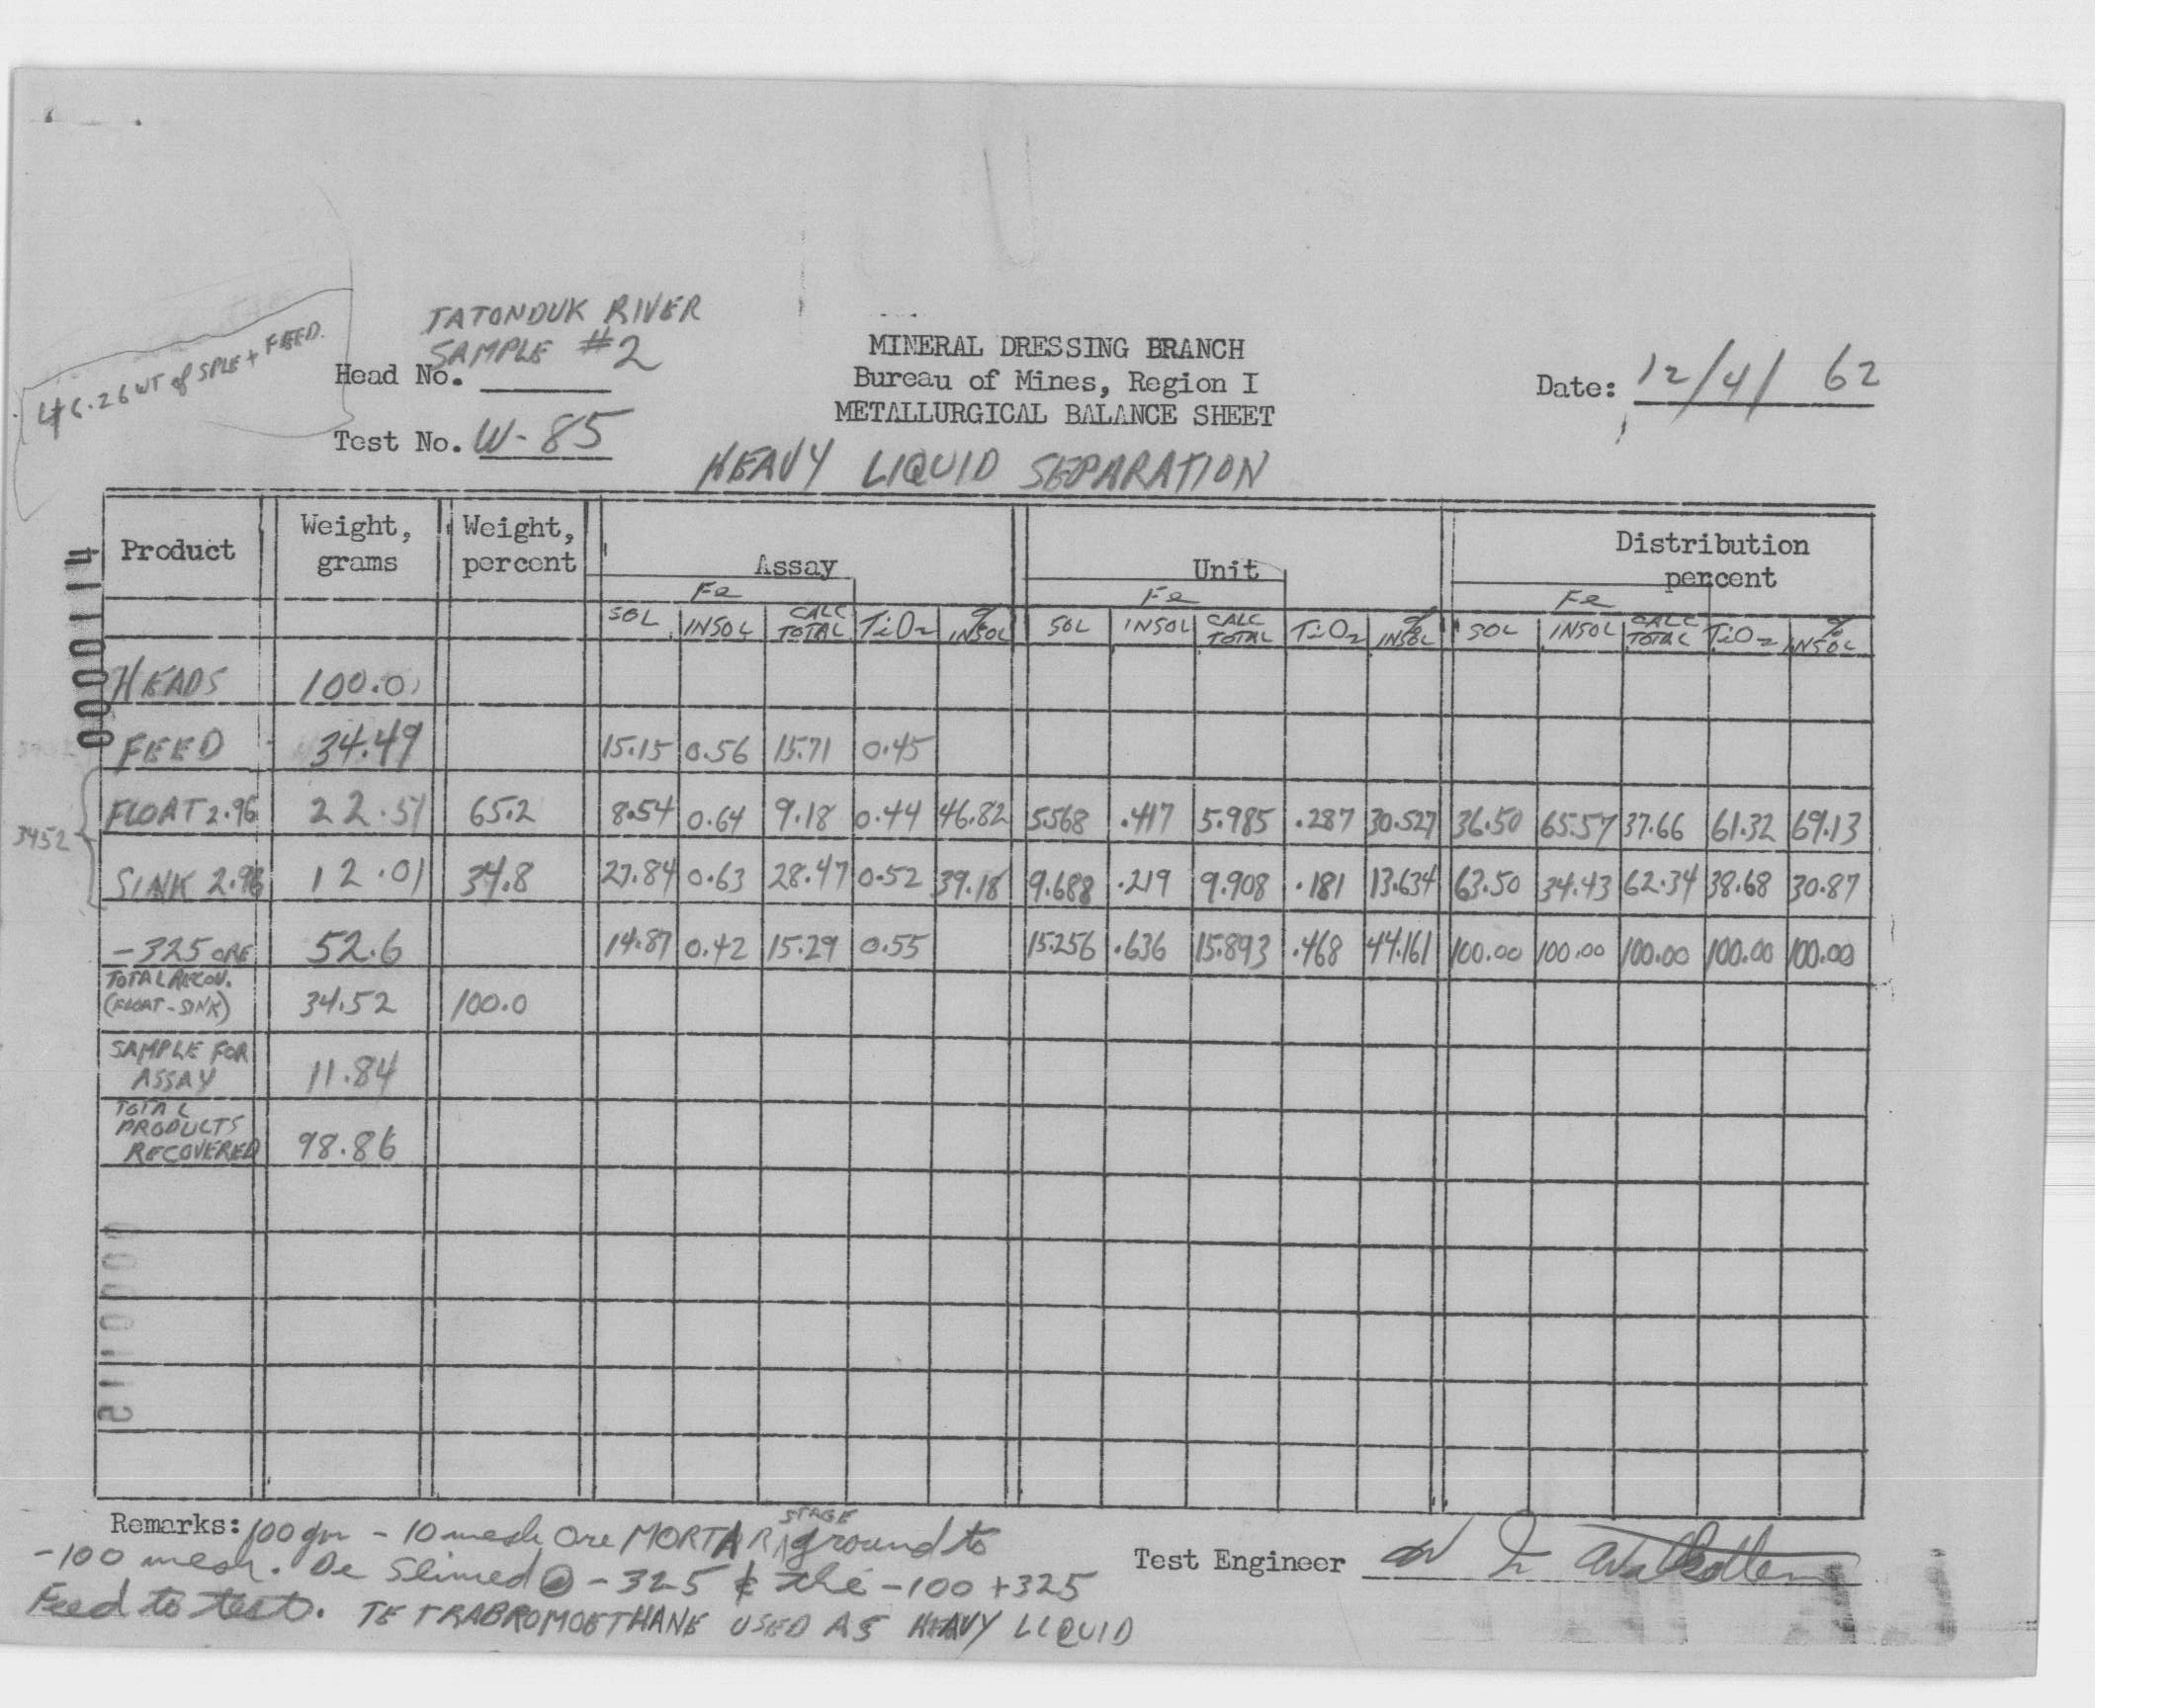 TATONDUK RIVER
SAMPLE #2
Head No.
46.26 WT of SPLE + FEED.
MINERAL DRESSING BRANCH
Bureau of Mines, Region I
METALLURGICAL BALANCE SHEET
Date: 12/4/62
Test No. W-85
HEAVY LIQUID SEPARATION
Product Weight, grams Weight, percent Assay Unit Distribution percent
Fe Fe Fe
SOL INSOL CALC TOTAL TiO2 % INSOL SOL INSOL CALC TOTAL TiO2 % INSOL SOL INSOL CALC TOTAL TiO2 % INSOL
HEADS 100.0
FEED 34.49 15.15 0.56 15.71 0.45
FLOAT 2.96 22.51 65.2 8.54 0.64 9.18 0.44 46.82 5.568 .417 5.985 .287 30.527 36.50 65.57 37.66 61.32 69.13
3452
SINK 2.96 12.01 34.8 27.84 0.63 28.47 0.52 39.18 9.688 .219 9.908 .181 13.634 63.50 34.43 62.34 38.68 30.87
-325 ORE 52.6 14.87 0.42 15.29 0.55 15.256 .636 15.893 .468 44.161 100.00 100.00 100.00 100.00 100.00
TOTAL RECOV.
(FLOAT-SINK) 34.52 100.0
SAMPLE FOR
ASSAY 11.84
TOTAL
PRODUCTS
RECOVERED 98.86
0000114
Remarks: 100 gm -10 mesh Ore MORTAR STAGE ground to
-100 mesh. De Slimed @ -325 & the -100 +325
Feed to test. TETRABROMOETHANE USED AS HEAVY LIQUID
Test Engineer